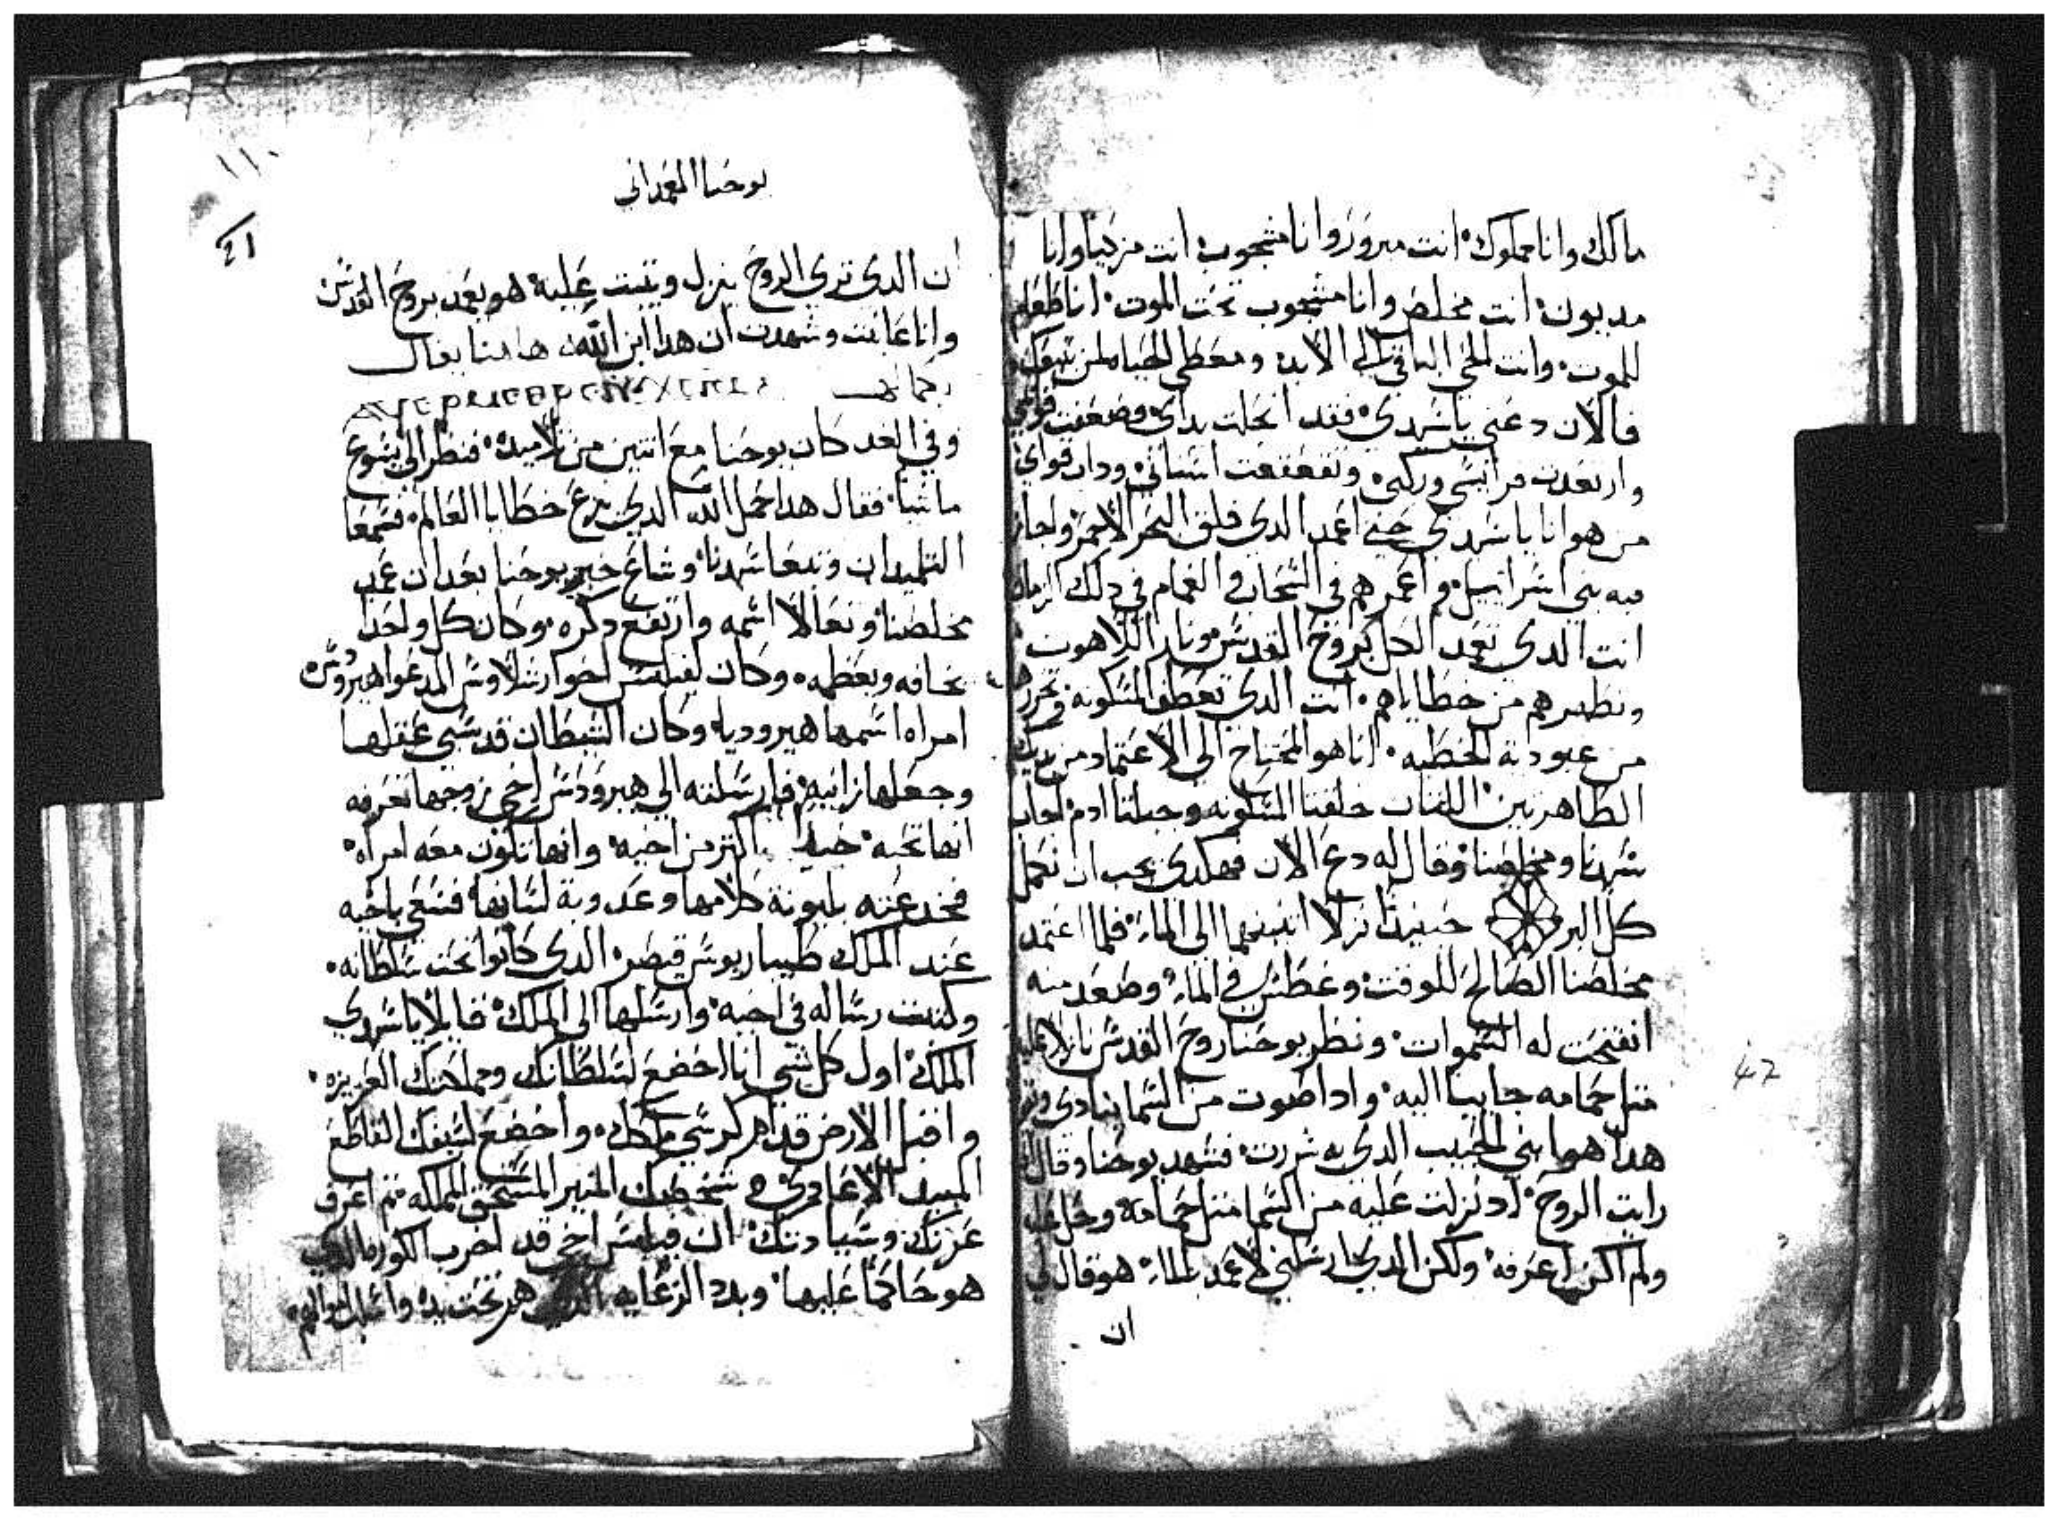 مالك وانا مملوك انت مبرور وانا مشجوب انت مزكيا وانا
مديون انت مخلص وانا مشجوب تحت الموت انا طعام
للموت وانت الحي الباقي الي الابد ومعطي الحياه لمن
فالان دعني ياسيدي فقد انحلت يداي وضعفت قوتي
وارتعدت فرايسي وركبي وتقعقعت اسناني وداب قواي
من هو انا ياسيدي حتي اعمد الدي فلق البحر الاحمر واجاز
فيه بني اسراييل واعمرهم في السحاب والغمام في دلك الزمان
انت الدي تعمد الكل بروح القدس ونار اللاهوت
وتطهرهم من خطاياهم انت الدي تعطي المسكونه
من عبودية الخطيه انا هو المحتاج الي الاعتماد من يديك
الطاهرتين اللتان خلقتا المسكونه وجبلتا ادم اجاب
سيدنا ومخلصنا وقال له دع الان فهكدي يجب ان نكمل
كل البر حينيدا نزلا اتنينهما الي الماء فلما اعتمد
مخلصنا الصالح للوقت وغطس في الماء وصعد منه
انفتحت له السموات ونظر يوحنا روح القدس نازلا عليه
متل حمامه جايينا اليه وادا صوت من السما ينادي
هدا هو ابني الحبيب الدي به سررت فشهد يوحنا وقال
رايت الروح اد نزلت عليه من السما متل حمامة وحل عليه
ولم اكن اعرفه ولكن الدي ارسلني لاعمد بالماء هو قال لي
ان
47
يوحنا المعمداني
١١٠
٤١
ان الدي تري الروح ينزل ويتبت عليه هو يعمد بروح القدس
وانا عاينت وشهدت ان هدا ابن الله هاهنا يقال
وفي الغد كان يوحنا مع اتنين من تلاميده فنظر الي يسوع
ماشيا فقال هدا حمل الله الدي يرفع خطايا العالم فسمعا
التلميدان وتبعا سيدنا وشاع خبر يوحنا بعد ان عمد
مخلصنا وتعالا اسمه وارتفع دكره وكان كل واحد
يخافه ويعظمه وكان لفيلبس اخو ارشلاوس المدعوا هيرودس
امراه اسمها هيروديا وكان الشيطان قد سبي عقلها
وجعلها زانيه فارسلته الي هيرودس اخي زوجها تعرفه
انها تحبه جيدا اكتر من اخيه وانها تكون معه امراه
فخدعته بليونة كلامها وعدوبة لسانها فسعي باخيه
عند الملك طيباريوس قيصر الدي كانوا تحت سلطانه
وكتبت رساله في اخيه وارسلها الي الملك قايلا ياسيدي
الملك اول كل شي انا اخضع لسلطانك ومملكتك العزيزه
واقبل الارض قدام كرسي ملكك واخضع لسيفك القاطع
المبيد الاعادي شخصك المنير المستحق المملكه تم اعرف
عزتك وسيادتك ان فيلبس اخي قد اخرب الكوره التي
هو حاكما عليها وبدد الرعايه هم تحت يده